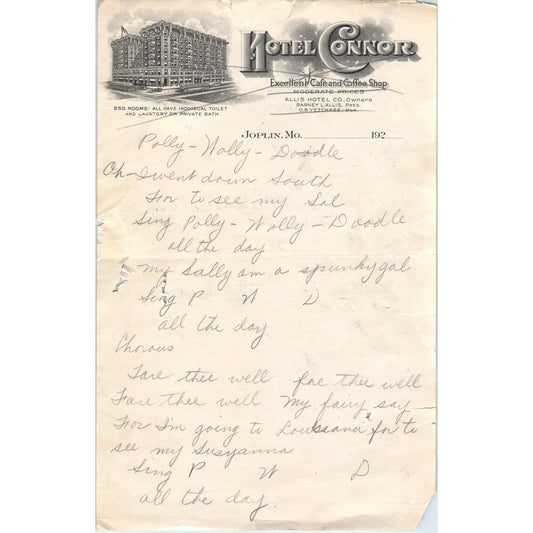 HOTEL CONNOR
Excellent Cafe and Coffee Shop
MODERATE PRICES
ALLIS HOTEL CO. Owners
BARNEY L. ALLIS, PRES.
250 ROOMS: ALL HAVE INDIVIDUAL TOILET
AND LAVATORY OR PRIVATE BATH
JOPLIN, MO. 192
Polly - Wolly - Doodle
Oh - I went down South
For to see my Sal
Sing Polly - Wolly - Doodle
all the day
My Sally am a spunky gal
Sing P W D
all the day
Chorous
Fare thee well fae thee well
Fare thee well My fairy say
For I'm going to Louisiana for to
see my Susyanna
Sing P W D
all the day.